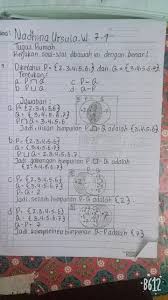 Nadhing Ursula.W. 7-1
Tugas Rumah
Kerjakan soal-soal dibawah ini dengan benar!
Diketahui P = {2.3.4.5.6} dan Q = {3.4.5.6.7}
Tentukan:
a. P ∩ Q
c. P - Q
b. P ∪ Q
d. Q - P
Jawaban:
a. P = {2.3.4.5.6}
Q = {3.4.5.6.7}
P ∩ Q = 3.4.5.6
Jadi, irisan himpunan P ∩ Q adalah
{3.4.5.6}
b. P = {2.3.4.5.6}
Q = {3.4.5.6.7}
Jadi gabungan himpunan P ∪ Q adalah
{2.3.4.5.6.7}
c. P = {2.3.4.5.6}
Q = {3.4.5.6.7}
P - Q = 2
Jadi himpunan P - Q adalah {2}
d. P = {2.3.4.5.6}
Q = {3.4.5.6.7}
Q - P = 7
Jadi himpunan Q - P adalah {7}
B612